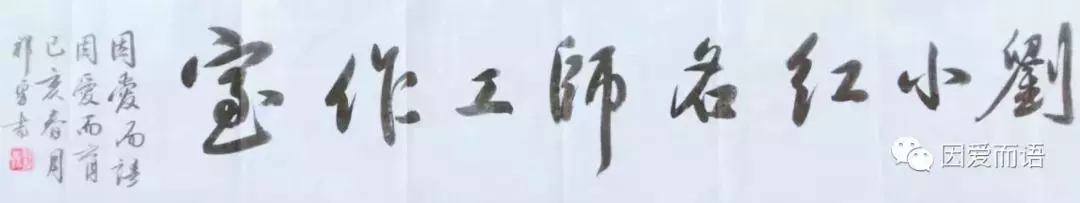 劉小红名師工作室
因愛而語
因愛而育
己亥春月
因爱而语